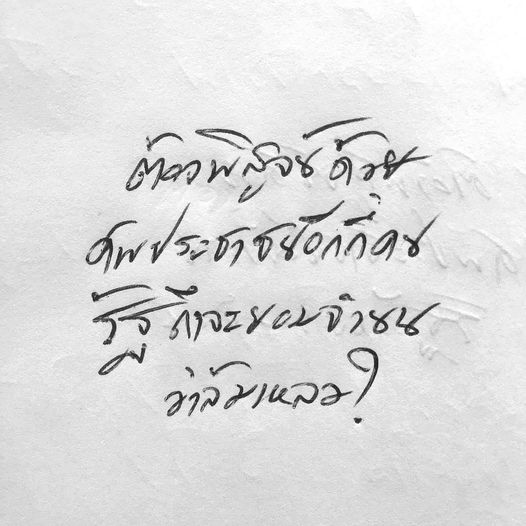 ต้องพิสูจน์ด้วย
ศพประชาชนอีกกี่คน
รัฐถึงจะยอมจำนน
ว่าล้มเหลว?